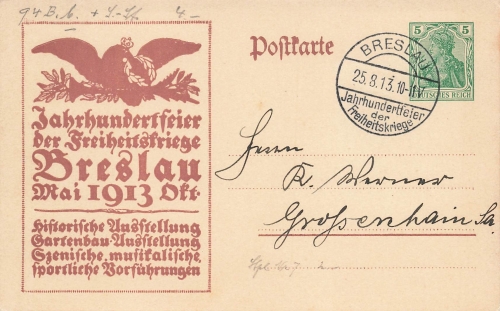 94 B.
4.-
Jahrhundertfeier
der Freiheitskriege
Breslau
Mai 1913 Okt.
Historische Ausstellung
Gartenbau-Ausstellung
Szenische, musikalische,
sportliche Vorführungen
Postkarte
5 5
DEUTSCHES REICH
BRESLAU
25.8.13.10-11V
Jahrhundertfeier
der
Freiheitskriege
Herrn
K. Werner
Großenhain Sa.